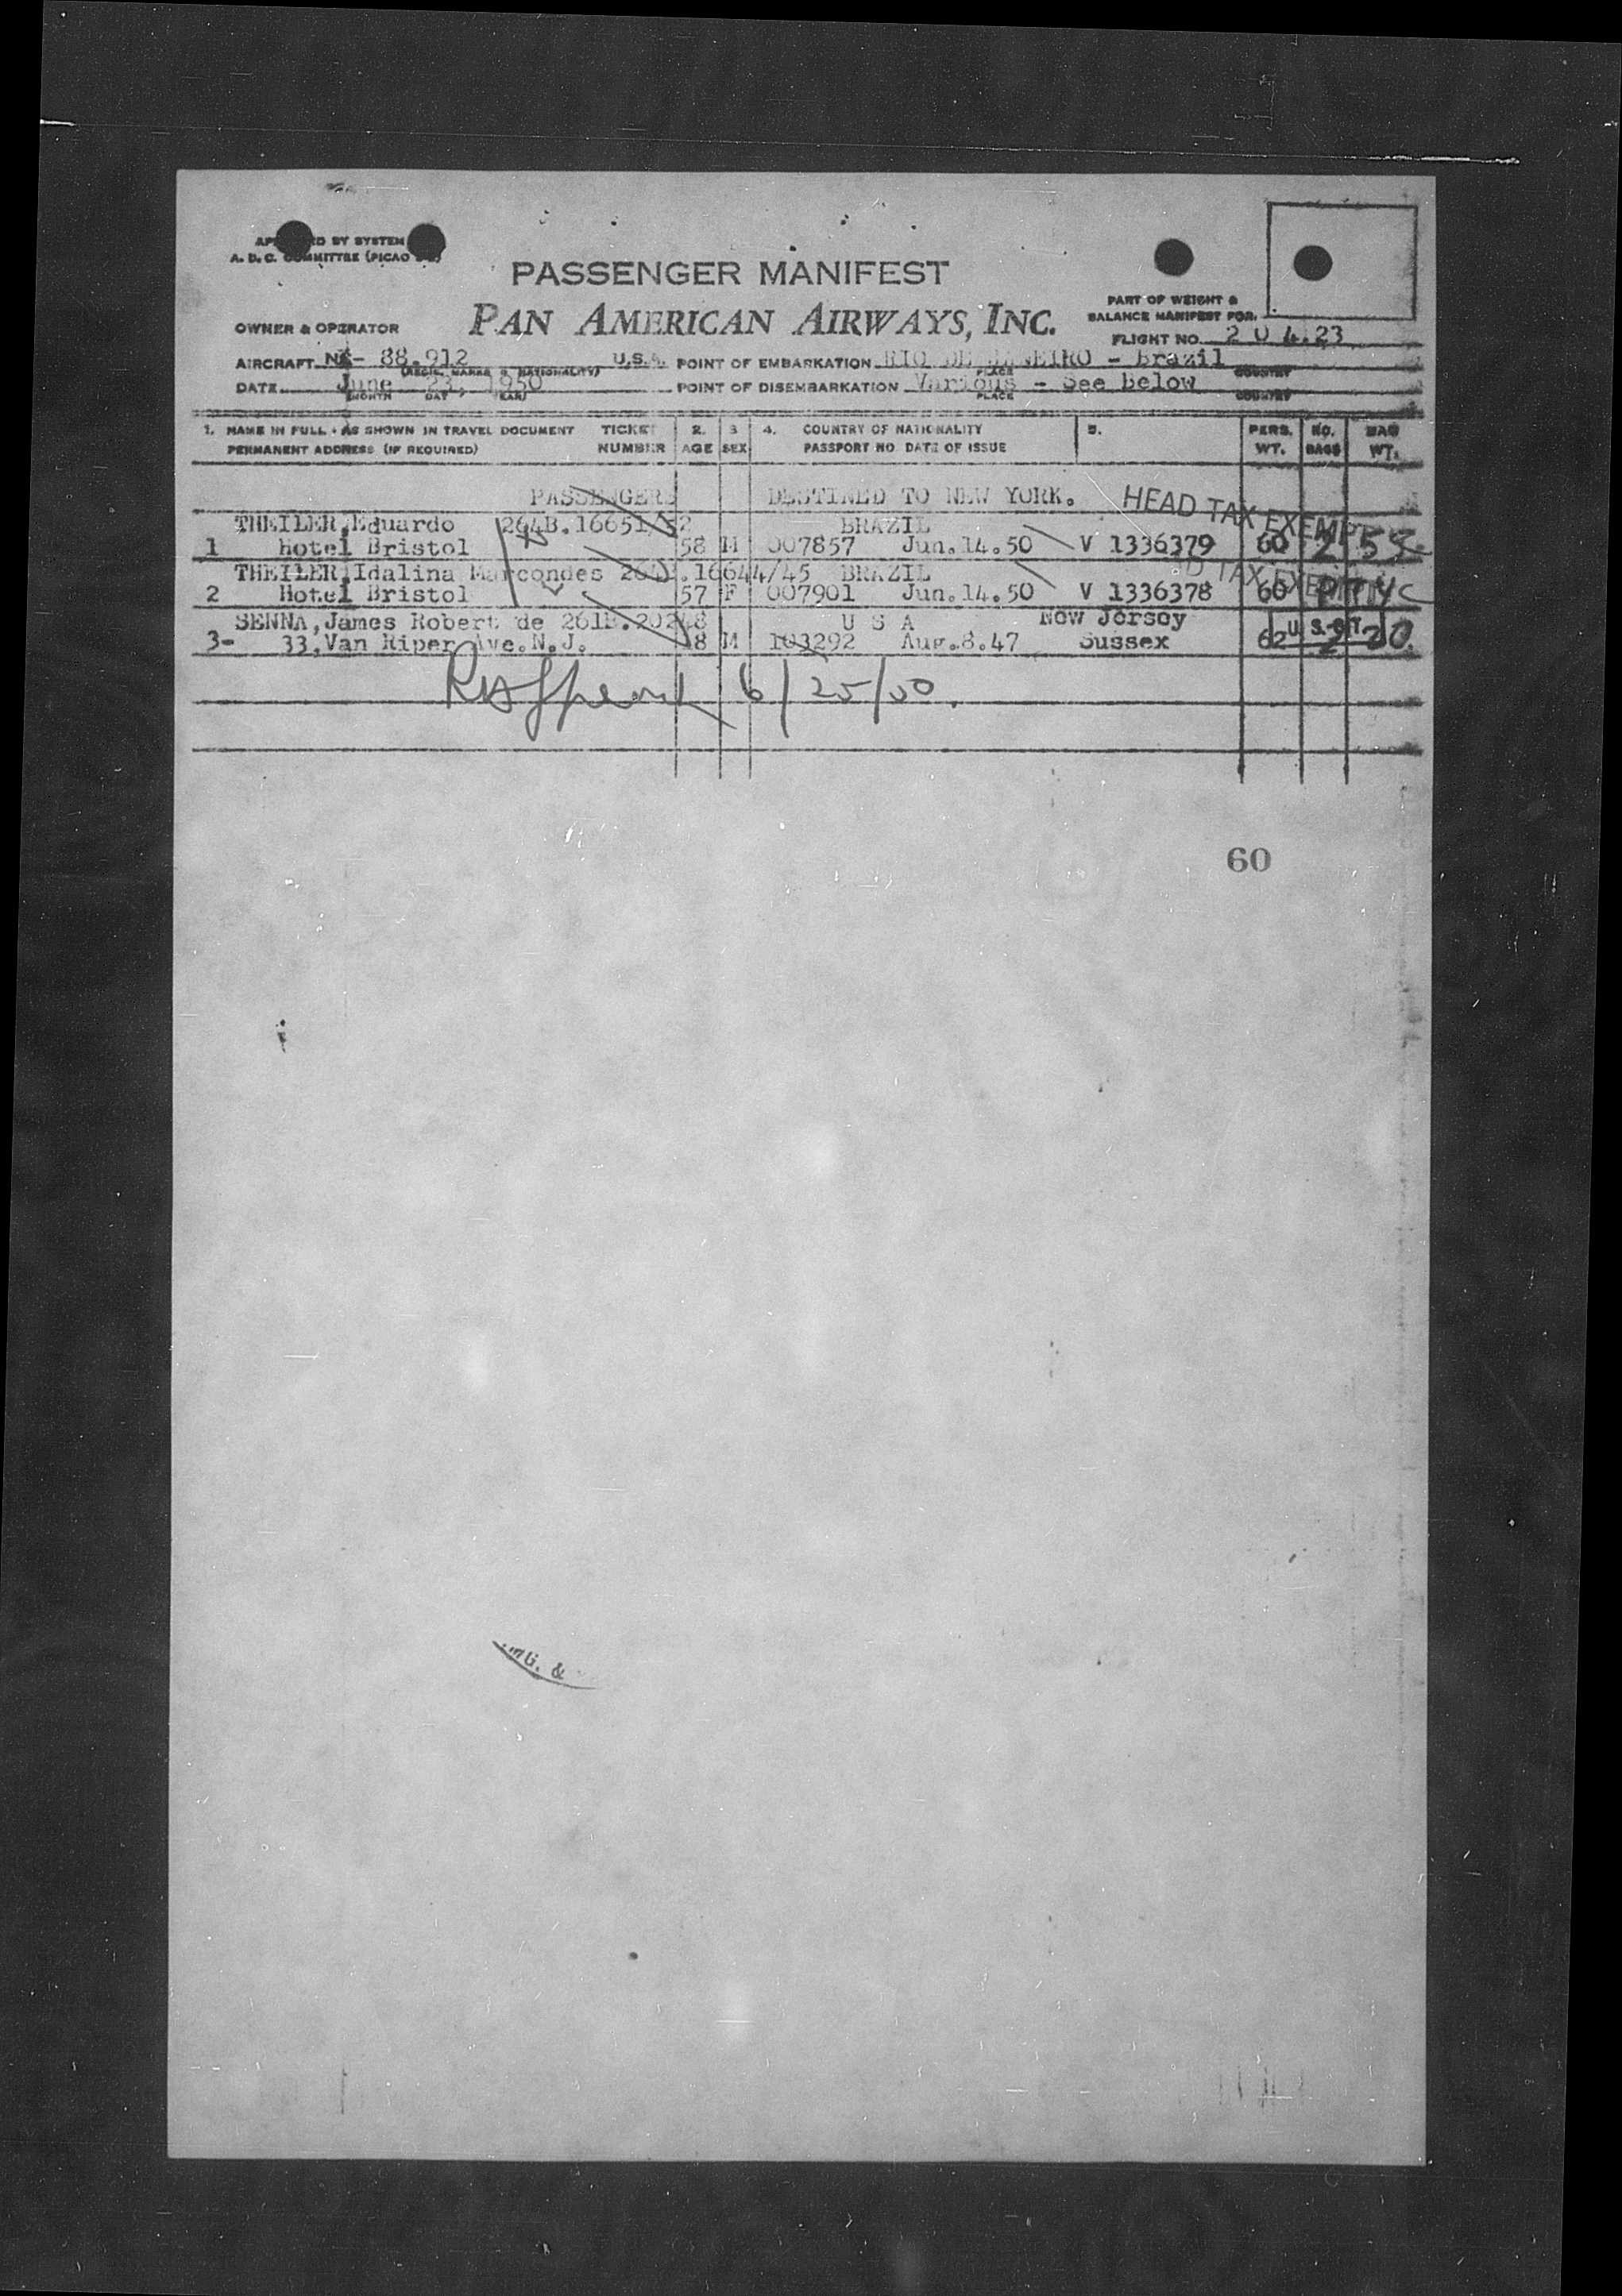 BY SYSTEM
A. D. C. COMMITTEE (PICAO
PASSENGER MANIFEST
PAN AMERICAN AIRWAYS, INC.
PART OF WEIGHT &
BALANCE MANIFEST FOR
OWNER & OPERATOR
FLIGHT NO. 204.23
AIRCRAFT 88.912 U.S.A. POINT OF EMBARKATION RIO DE JANEIRO - Brazil
(REGIS. MARKS & NATIONALITY) PLACE COUNTRY
DATE June 23, 1950 POINT OF DISEMBARKATION Various - See Below
MONTH DAY YEAR PLACE COUNTRY
1. NAME IN FULL - AS SHOWN IN TRAVEL DOCUMENT TICKET 2. 3 4. COUNTRY OF NATIONALITY 5. PERS. NO. BAG
PERMANENT ADDRESS (IF REQUIRED) NUMBER AGE SEX PASSPORT NO. DATE OF ISSUE WT. BAGS WT.
PASSENGERS DESTINED TO NEW YORK. HEAD TAX EXEMPT
THEILER, Eduardo 264B.16651/52 BRAZIL
1 Hotel Bristol 58 M 007857 Jun.14.50 V 1336379 60 2
THEILER, Idalina Marcondes .16644/45 BRAZIL TAX EXEMPT
2 Hotel Bristol 57 F 007901 Jun.14.50 V 1336378 60
SENNA, James Robert de U S A New Jersey
3- 33, Van Riper Ave. N.J. M 103292 Aug.8.47 Sussex 62 2 20
6/25/50.
60